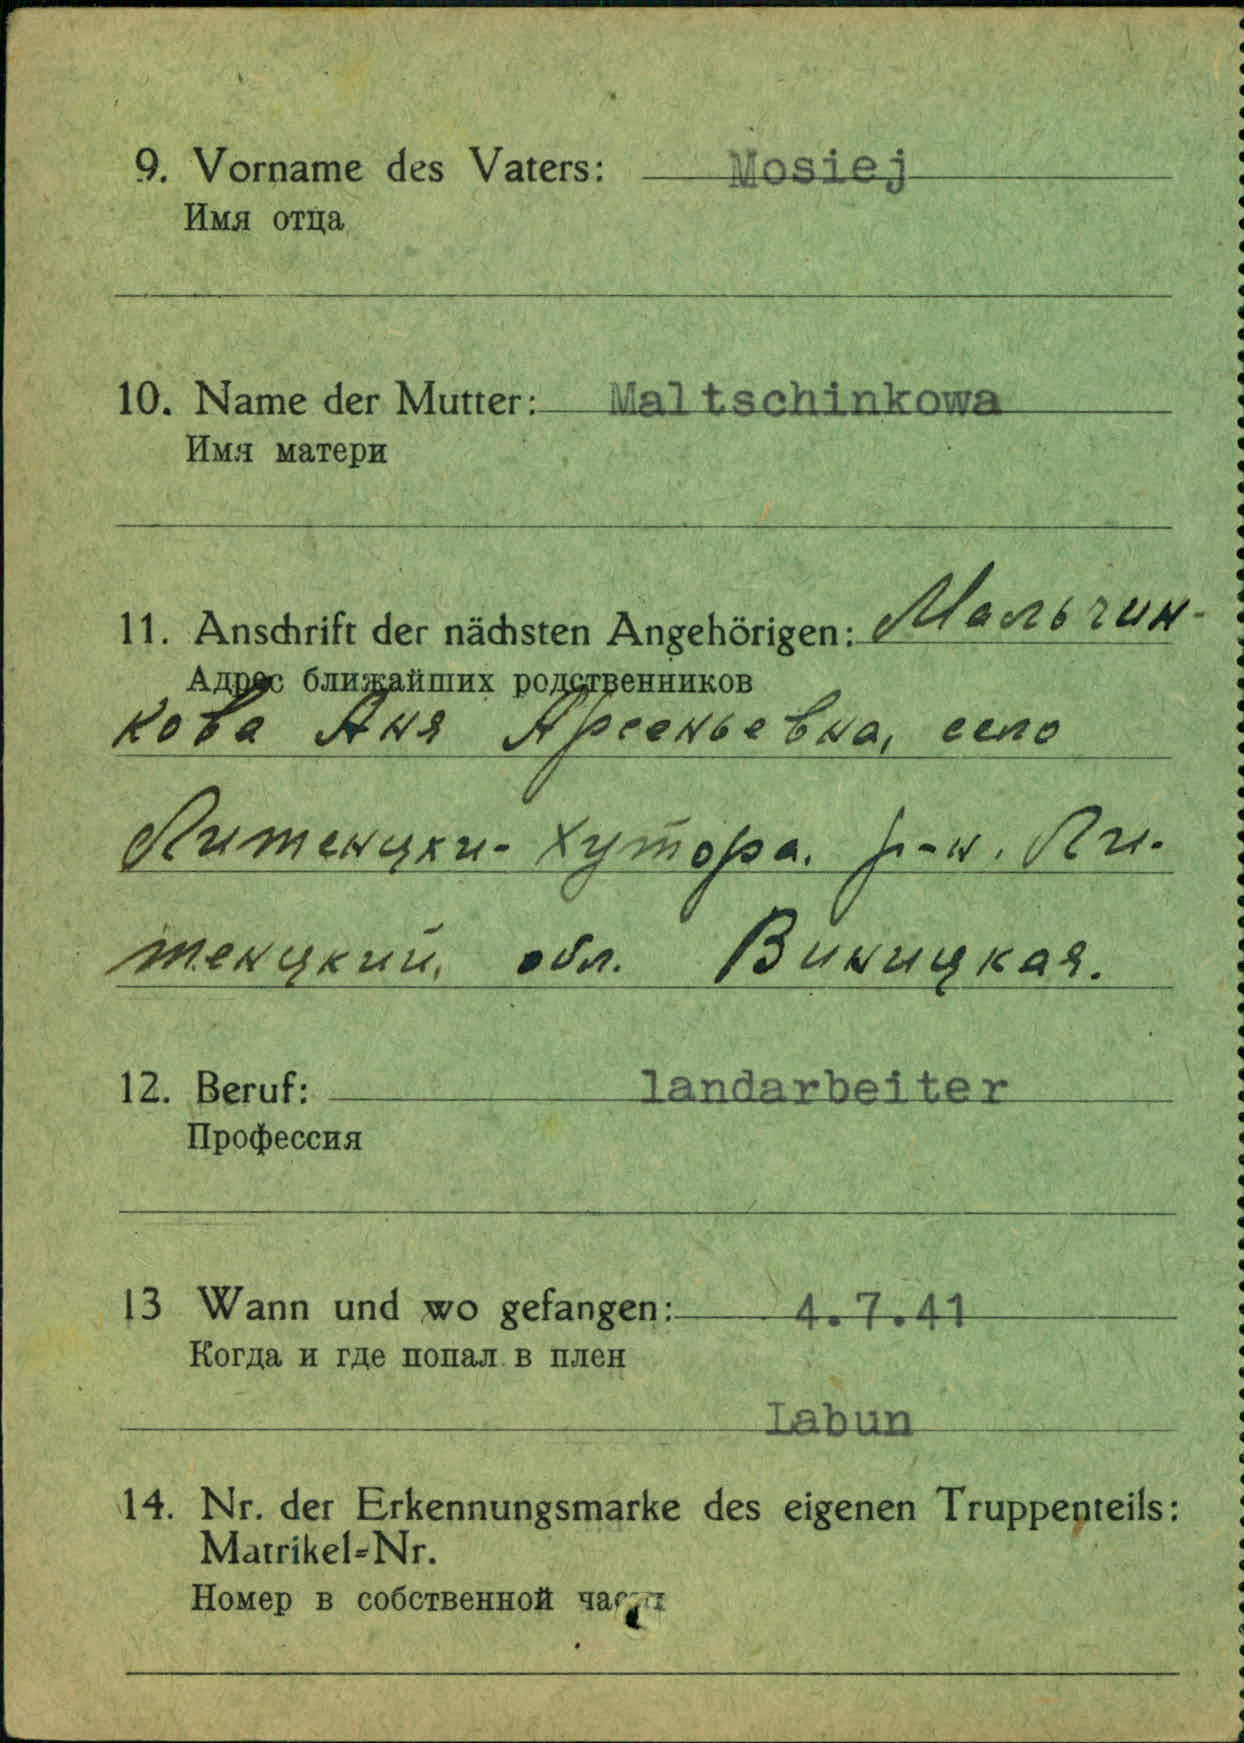 9. Vorname des Vaters: Mosiej
Имя отца
10. Name der Mutter: Maltschinkowa
Имя матери
11. Anschrift der nächsten Angehörigen: Мальчин-
Адрес ближайших родственников
кова Аня Арсеньевна, село
Литенцки-Хутора. р-н. Ли-
тенцкий, обл. Виницкая.
12. Beruf: landarbeiter
Профессия
13 Wann und wo gefangen: 4.7.41
Когда и где попал в плен
Labun
14. Nr. der Erkennungsmarke des eigenen Truppenteils:
Matrikel-Nr.
Номер в собственной части